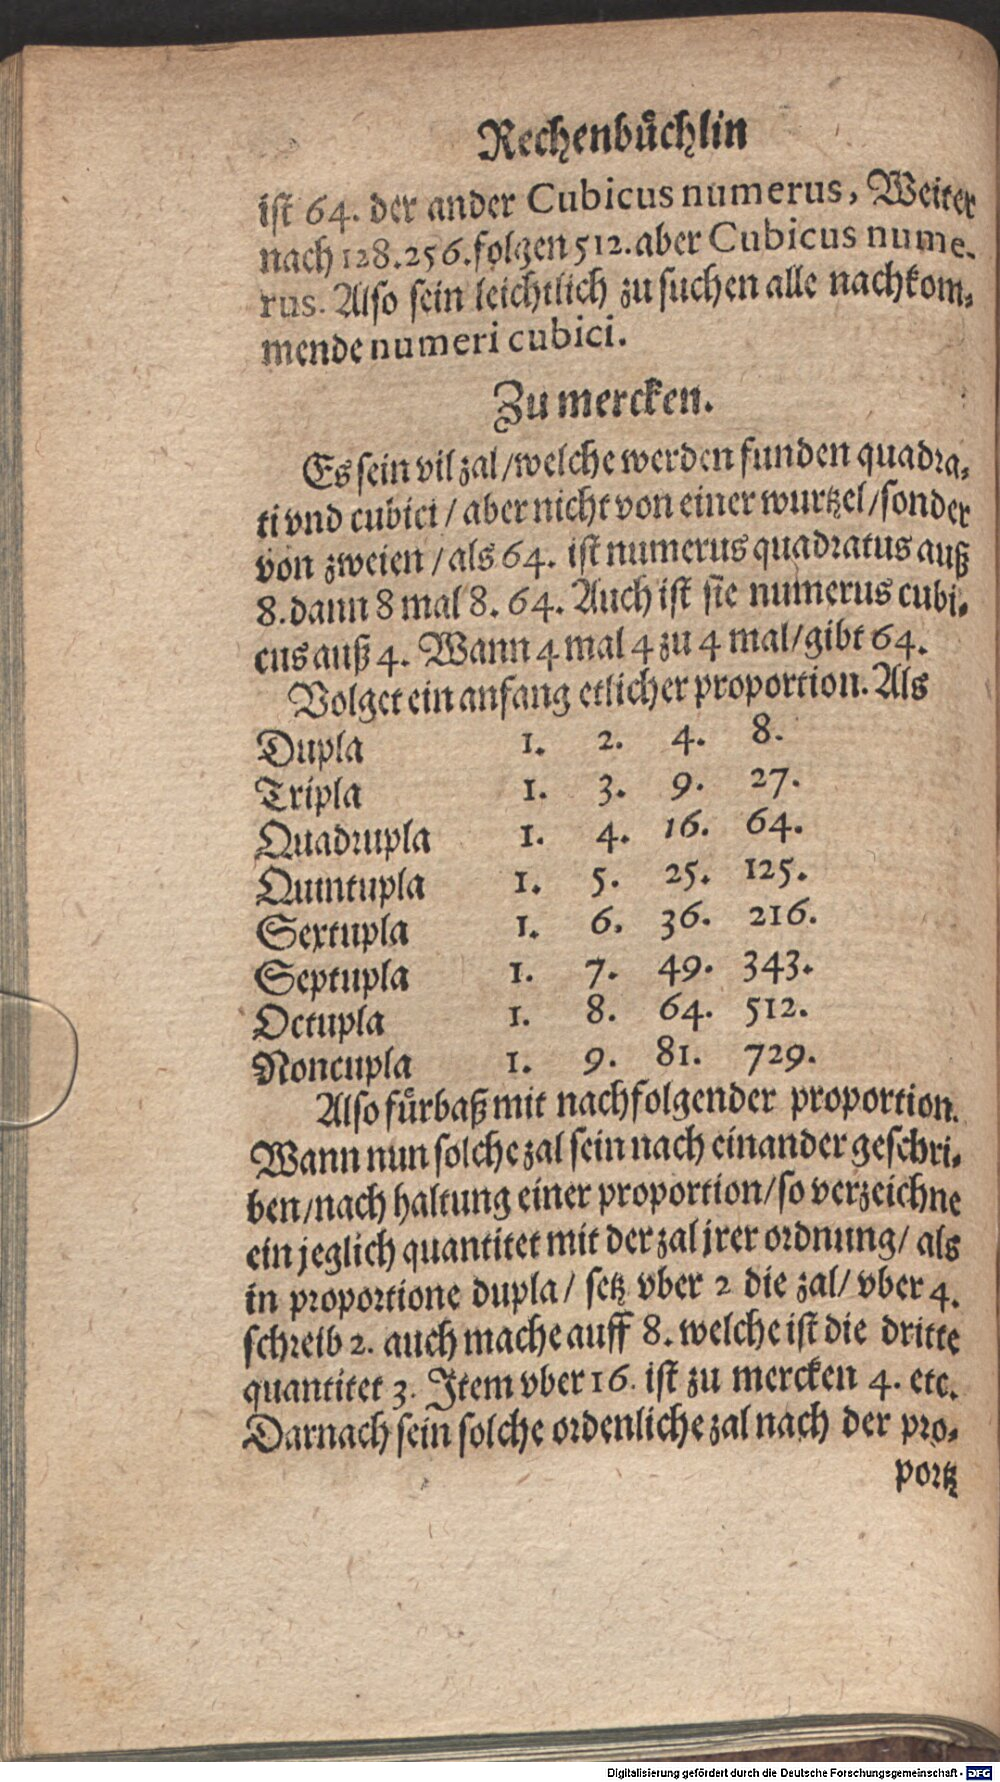 Rechenbuͤchlin
ist 64. der ander Cubicus numerus, Weiter
nach 128.256. folgen 512. aber Cubicus nume-
rus. Also sein leichtlich zu suchen alle nachkom-
mende numeri cubici.
Zu mercken.
Es sein vil zal / welche werden funden quadra-
ti vnd cubici / aber nicht von einer wurtzel / sonder
von zweien / als 64. ist numerus quadratus auß
8. dann 8 mal 8. 64. Auch ist sie numerus cubi-
cus auß 4. Wann 4 mal 4 zu 4 mal / gibt 64.
Volget ein anfang etlicher proportion. Als
Dupla 1. 2. 4. 8.
Tripla 1. 3. 9. 27.
Quadrupla 1. 4. 16. 64.
Quintupla 1. 5. 25. 125.
Sextupla 1. 6. 36. 216.
Septupla 1. 7. 49. 343.
Octupla 1. 8. 64. 512.
Noncupla 1. 9. 81. 729.
Also fuͤrbaß mit nachfolgender proportion.
Wann nun solche zal sein nach einander geschri-
ben / nach haltung einer proportion / so verzeichne
ein jeglich quantitet mit der zal jrer ordnung / als
in proportione dupla / setz vber 2 die zal / vber 4.
schreib 2. auch mache auff 8. welche ist die dritte
quantitet 3. Item vber 16. ist zu mercken 4. etc.
Darnach sein solche ordenliche zal nach der pro-
portz
Digitalisierung gefördert durch die Deutsche Forschungsgemeinschaft - DFG